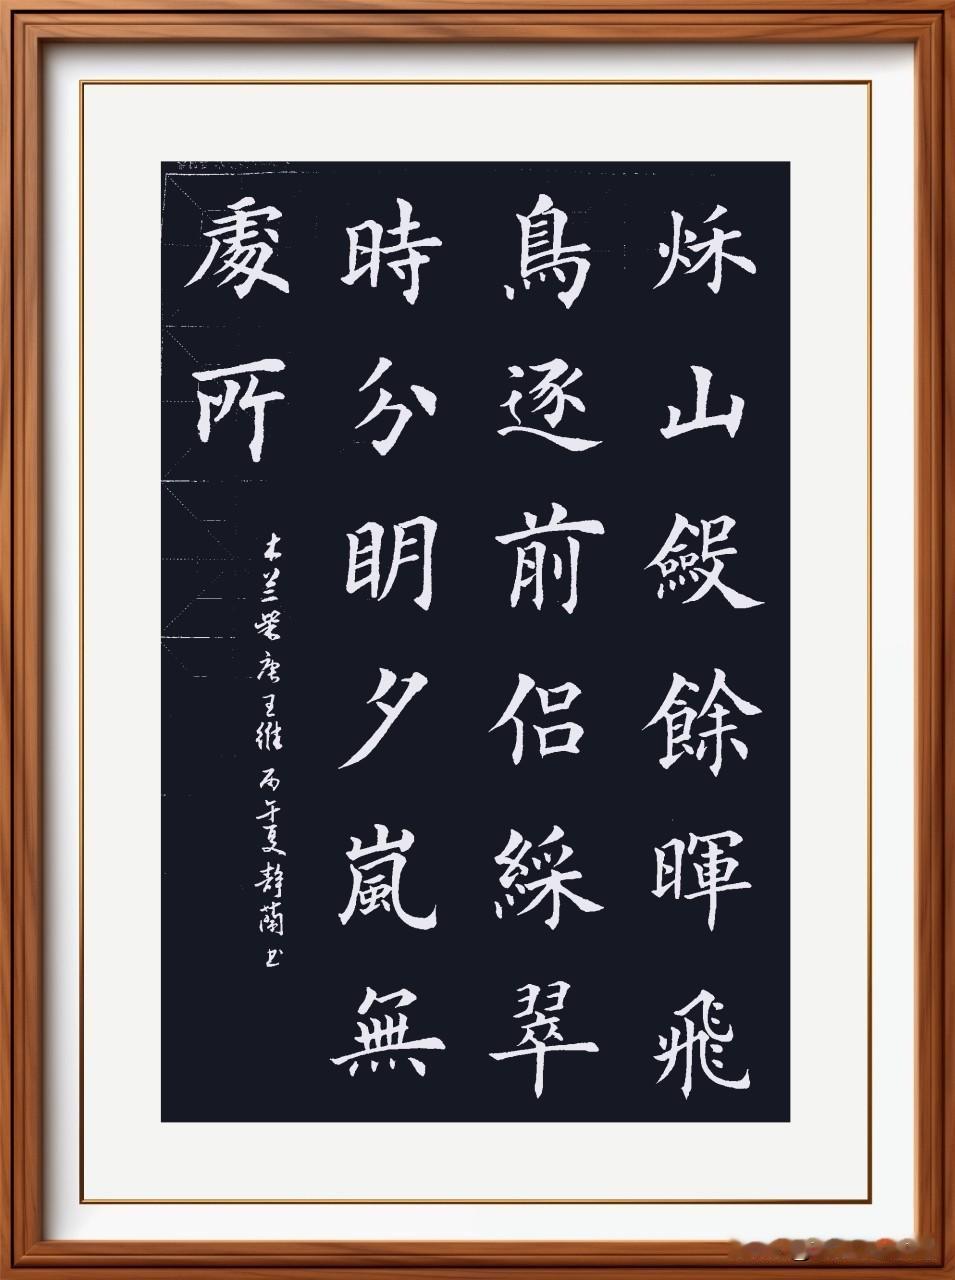 秌山斂餘暉飛
鳥逐前侶綵翠
時分明夕嵐無
處所
木兰柴唐王維丙午夏静蘭书